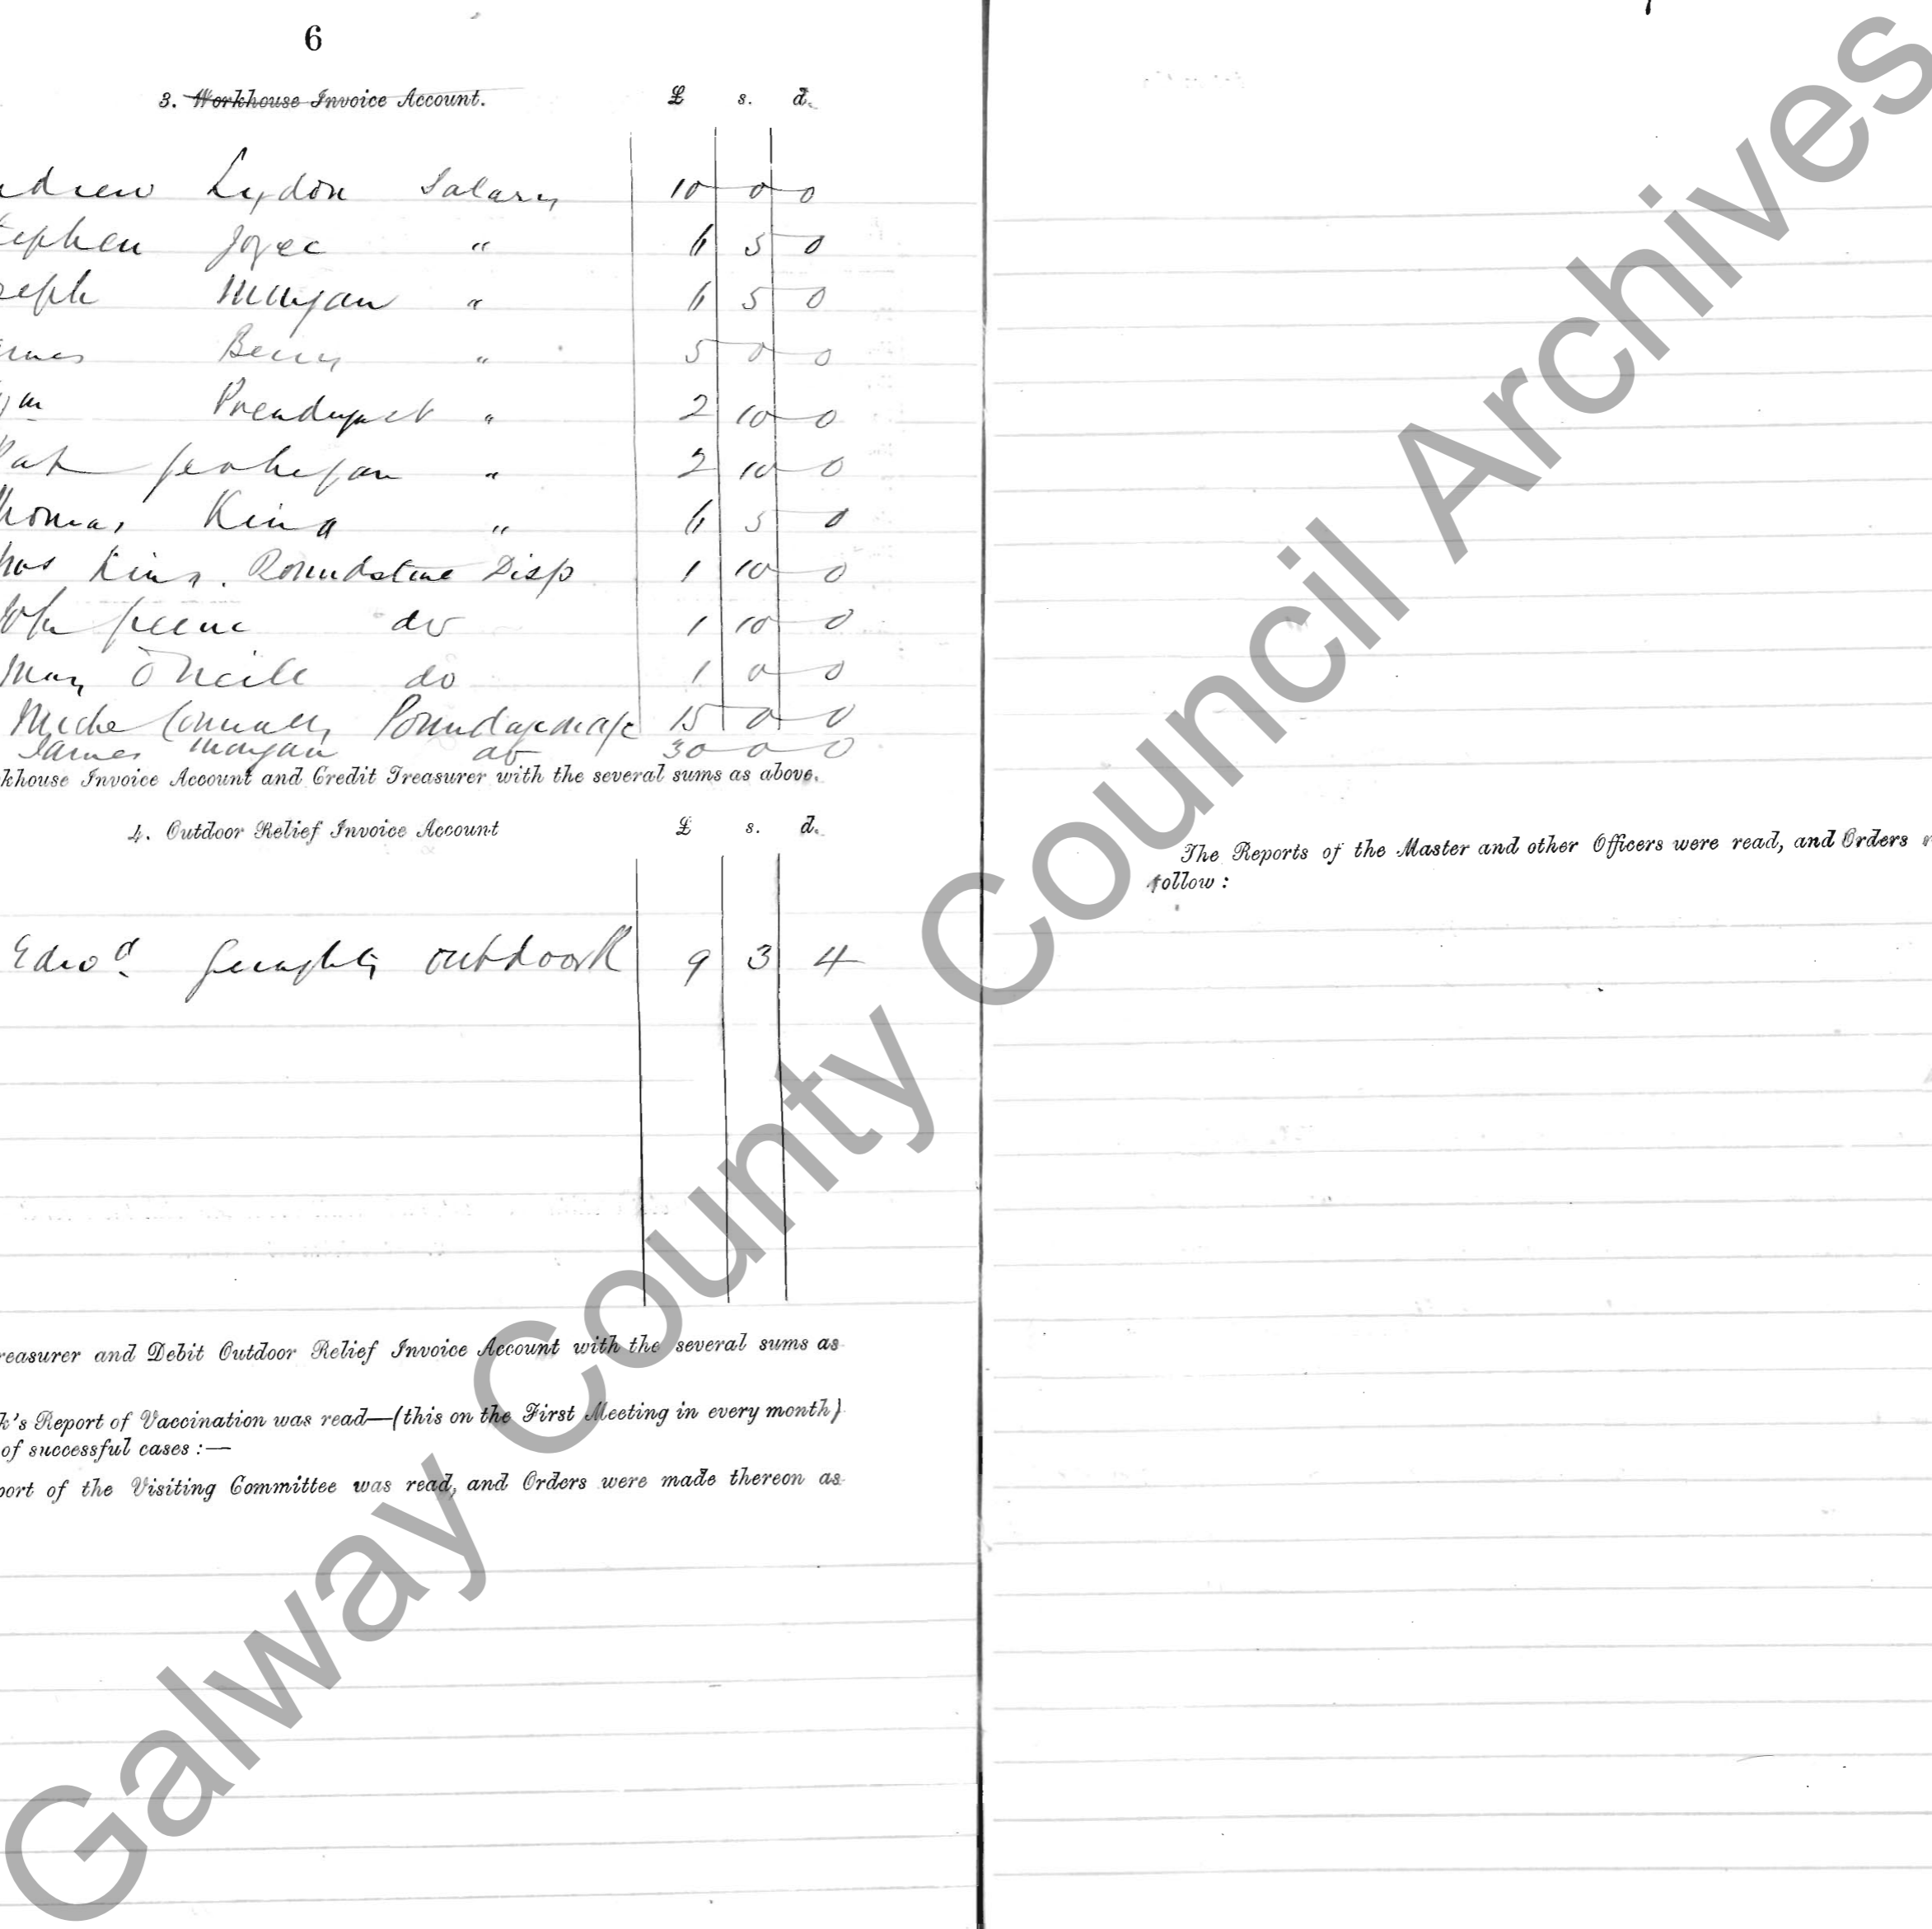 6
3. Workhouse Invoice Account. £ s. d.
drew Lydon Salary 10 0 0
tephen Joyce " 6 5 0
seph Mangan " 6 5 0
ames Berry " 5 0 0
Wm Prendergast " 2 10 0
Pat Geohegan " 2 10 0
homas King " 6 5 0
hos King. Roundstone Disp 1 10 0
John Greene do 1 10 0
Mary O'Neill do 1 0 0
Miche Connolly Poundage 15 0 0
James Mangan do 30 0 0
khouse Invoice Account and Credit Treasurer with the several sums as above.
4. Outdoor Relief Invoice Account £ s. d.
Edwd Geraghty outdoor R 9 3 4
reasurer and Debit Outdoor Relief Invoice Account with the several sums as
k's Report of Vaccination was read—(this on the First Meeting in every month)
of successful cases :—
port of the Visiting Committee was read, and Orders were made thereon as
The Reports of the Master and other Officers were read, and Orders
follow :
Galway County Council Archives